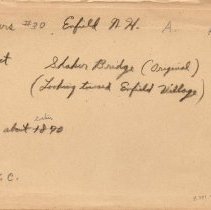 #30 Enfield N.H. A.
Shaker Bridge (Original)
(Looking toward Enfield Village)
about 1890
C.